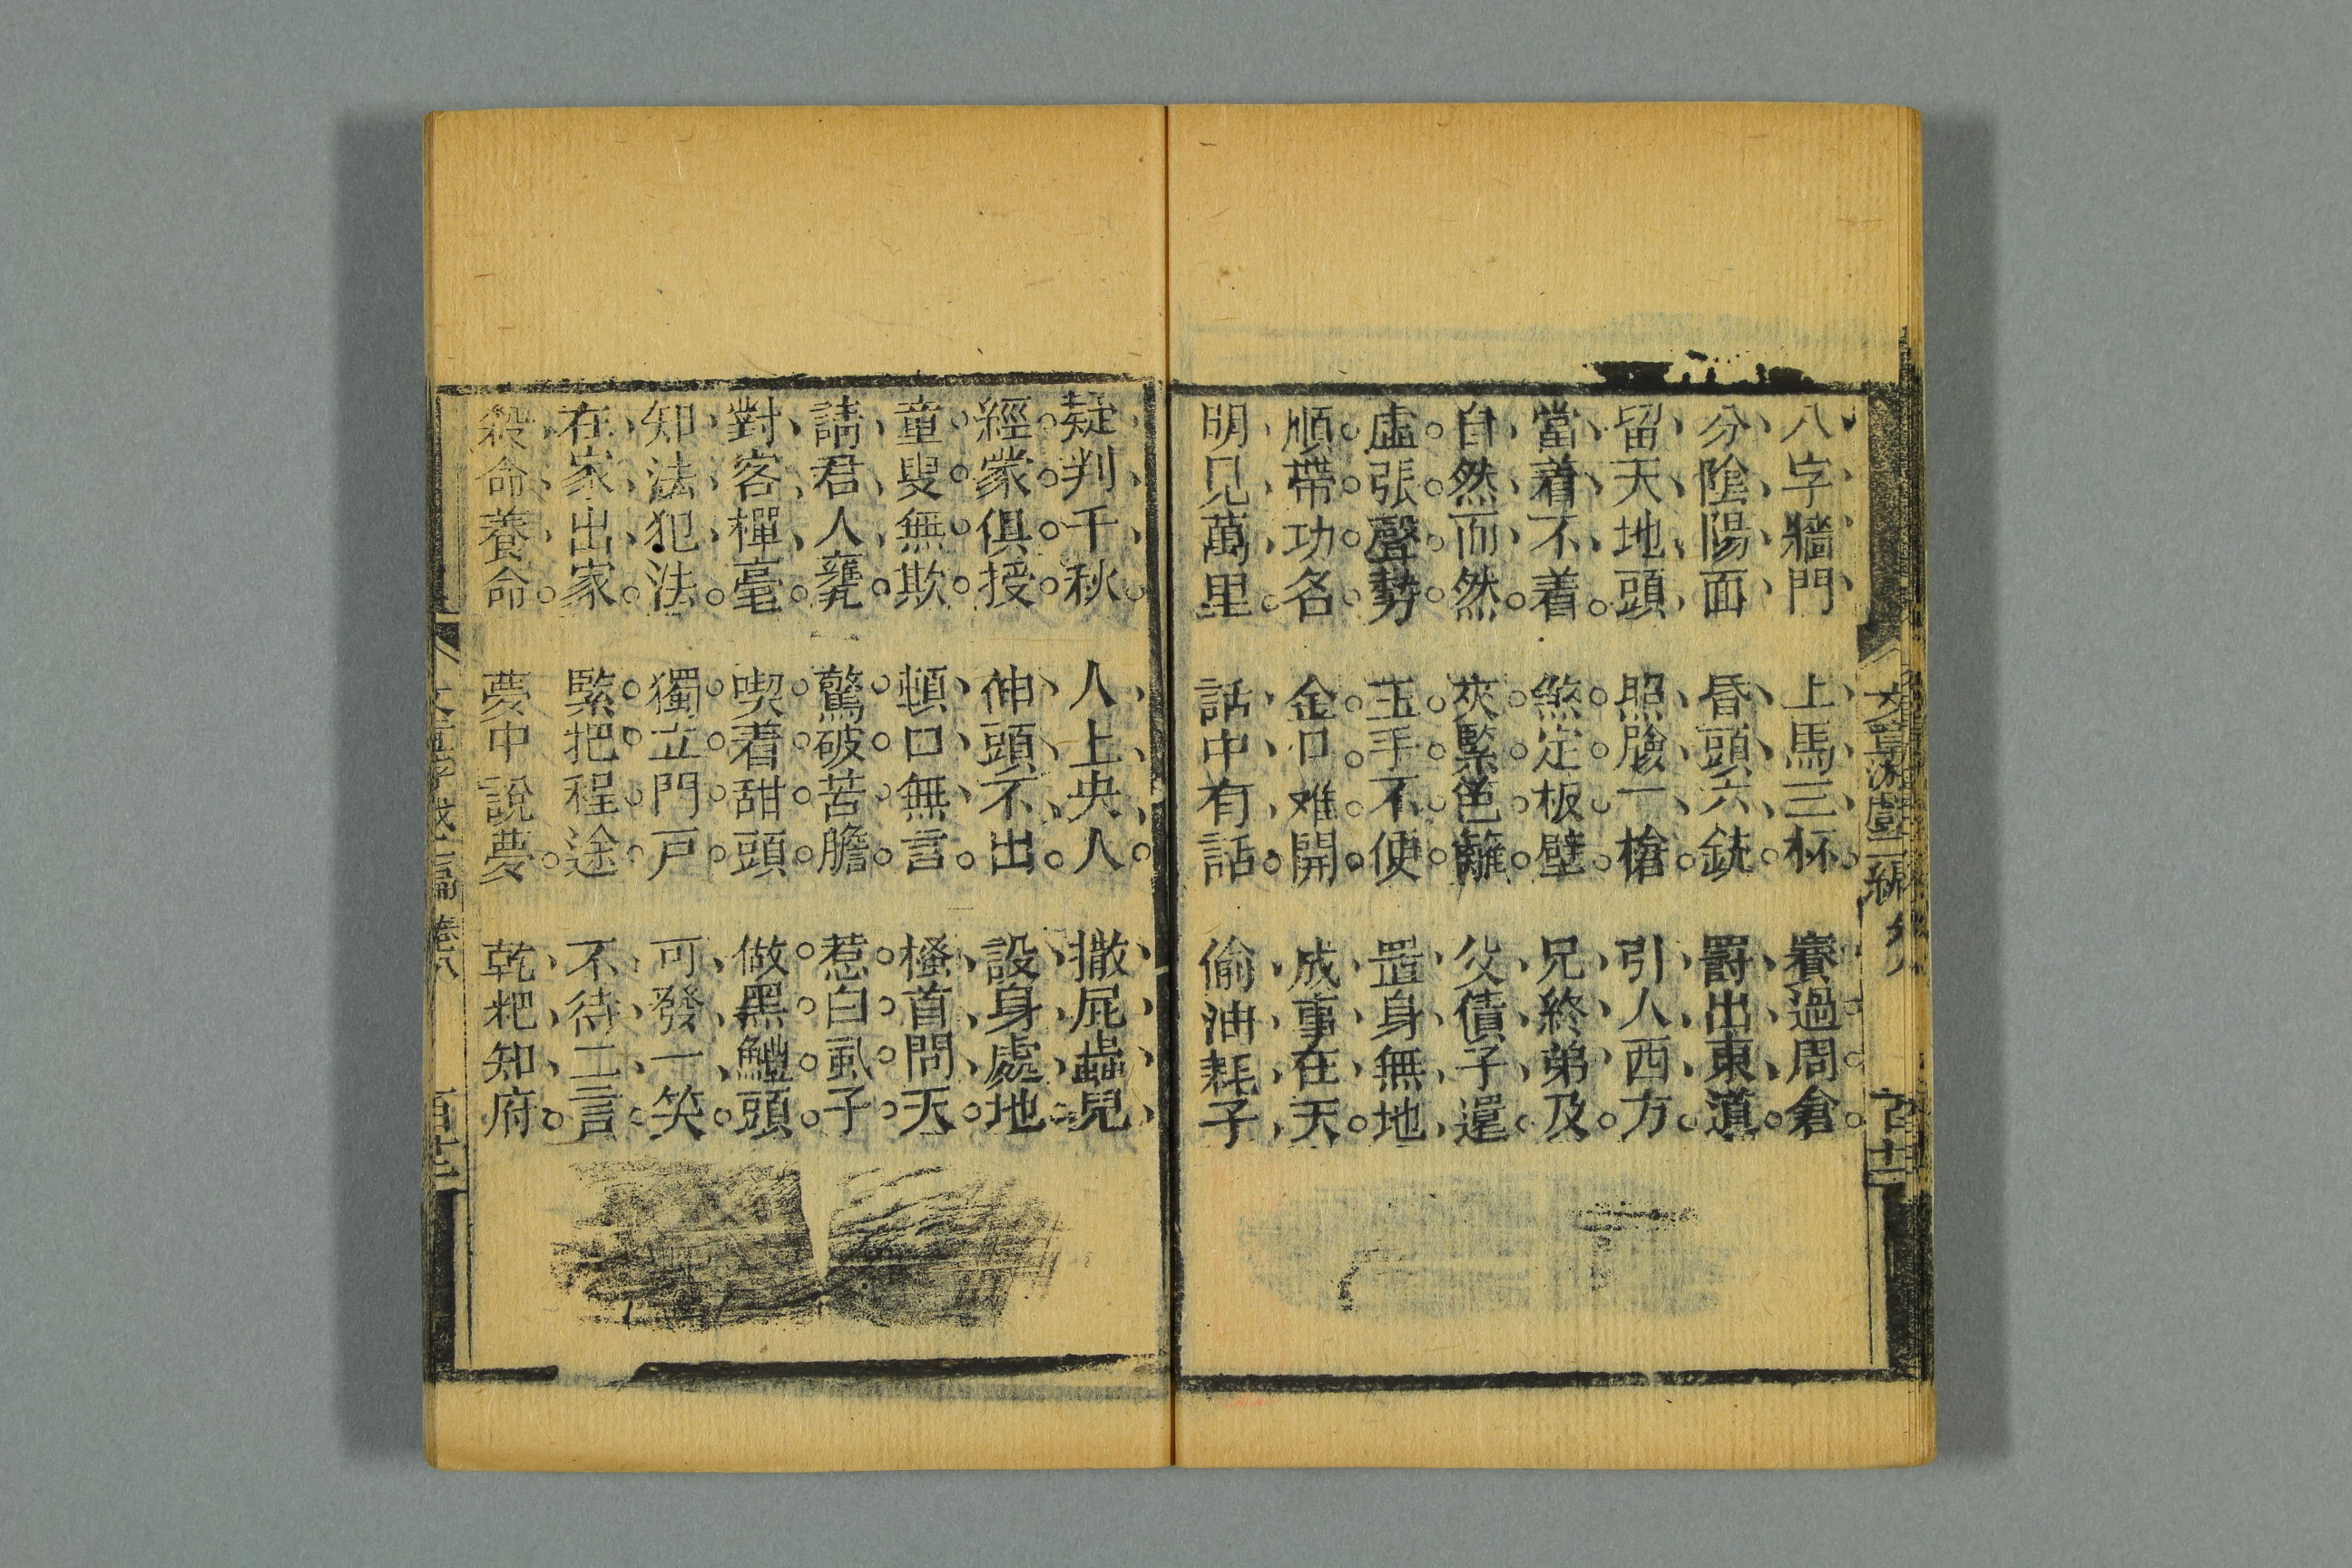 八字牆門　上馬三杯　賽過周倉
分陰陽面　昏頭六銃　罸出東道
留天地頭　照臉一槍　引人西方
當着不着　煞定板壁　兄終弟及
自然而然　夾緊笆籬　父債子還
虛張聲勢　玉手不便　置身無地
順帶功名　金口难開　成事在天
明見萬里　話中有話　偷油耗子
疑判千秋　人上央人　撒屁蝨兒
經蒙俱授　伸頭不出　設身處地
童叟無欺　頓口無言　搔首問天
請君人甕　驚破苦膽　惹白虱子
對客揮毫　喫着甜頭　做黑鱧頭
知法犯法　獨立門戸　可發一笑
在家出家　緊把程途　不待二言
殺命養命　夢中說夢　乾粑知府
文章游戲二編
卷八